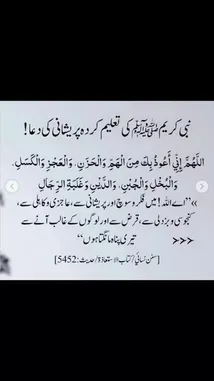 نبی کریم ﷺ کی تعلیم کردہ پریشانی کی دعا!
اللَّهُمَّ إِنِّي أَعُوذُ بِكَ مِنَ الْهَمِّ وَالْحَزَنِ، وَالْعَجْزِ وَالْكَسَلِ،
وَالْبُخْلِ وَالْجُبْنِ، وَالدَّيْنِ وَغَلَبَةِ الرِّجَالِ
»”اے اللہ! میں فکر و سوچ اور پریشانی سے، عاجزی و کاہلی سے،
کنجوسی و بزدلی سے، قرض سے اور لوگوں کے غالب آنے سے
تیری پناہ مانگتا ہوں“ >>>
[سنن نسائی/کتاب الاستعاذۃ/حدیث: 5452]